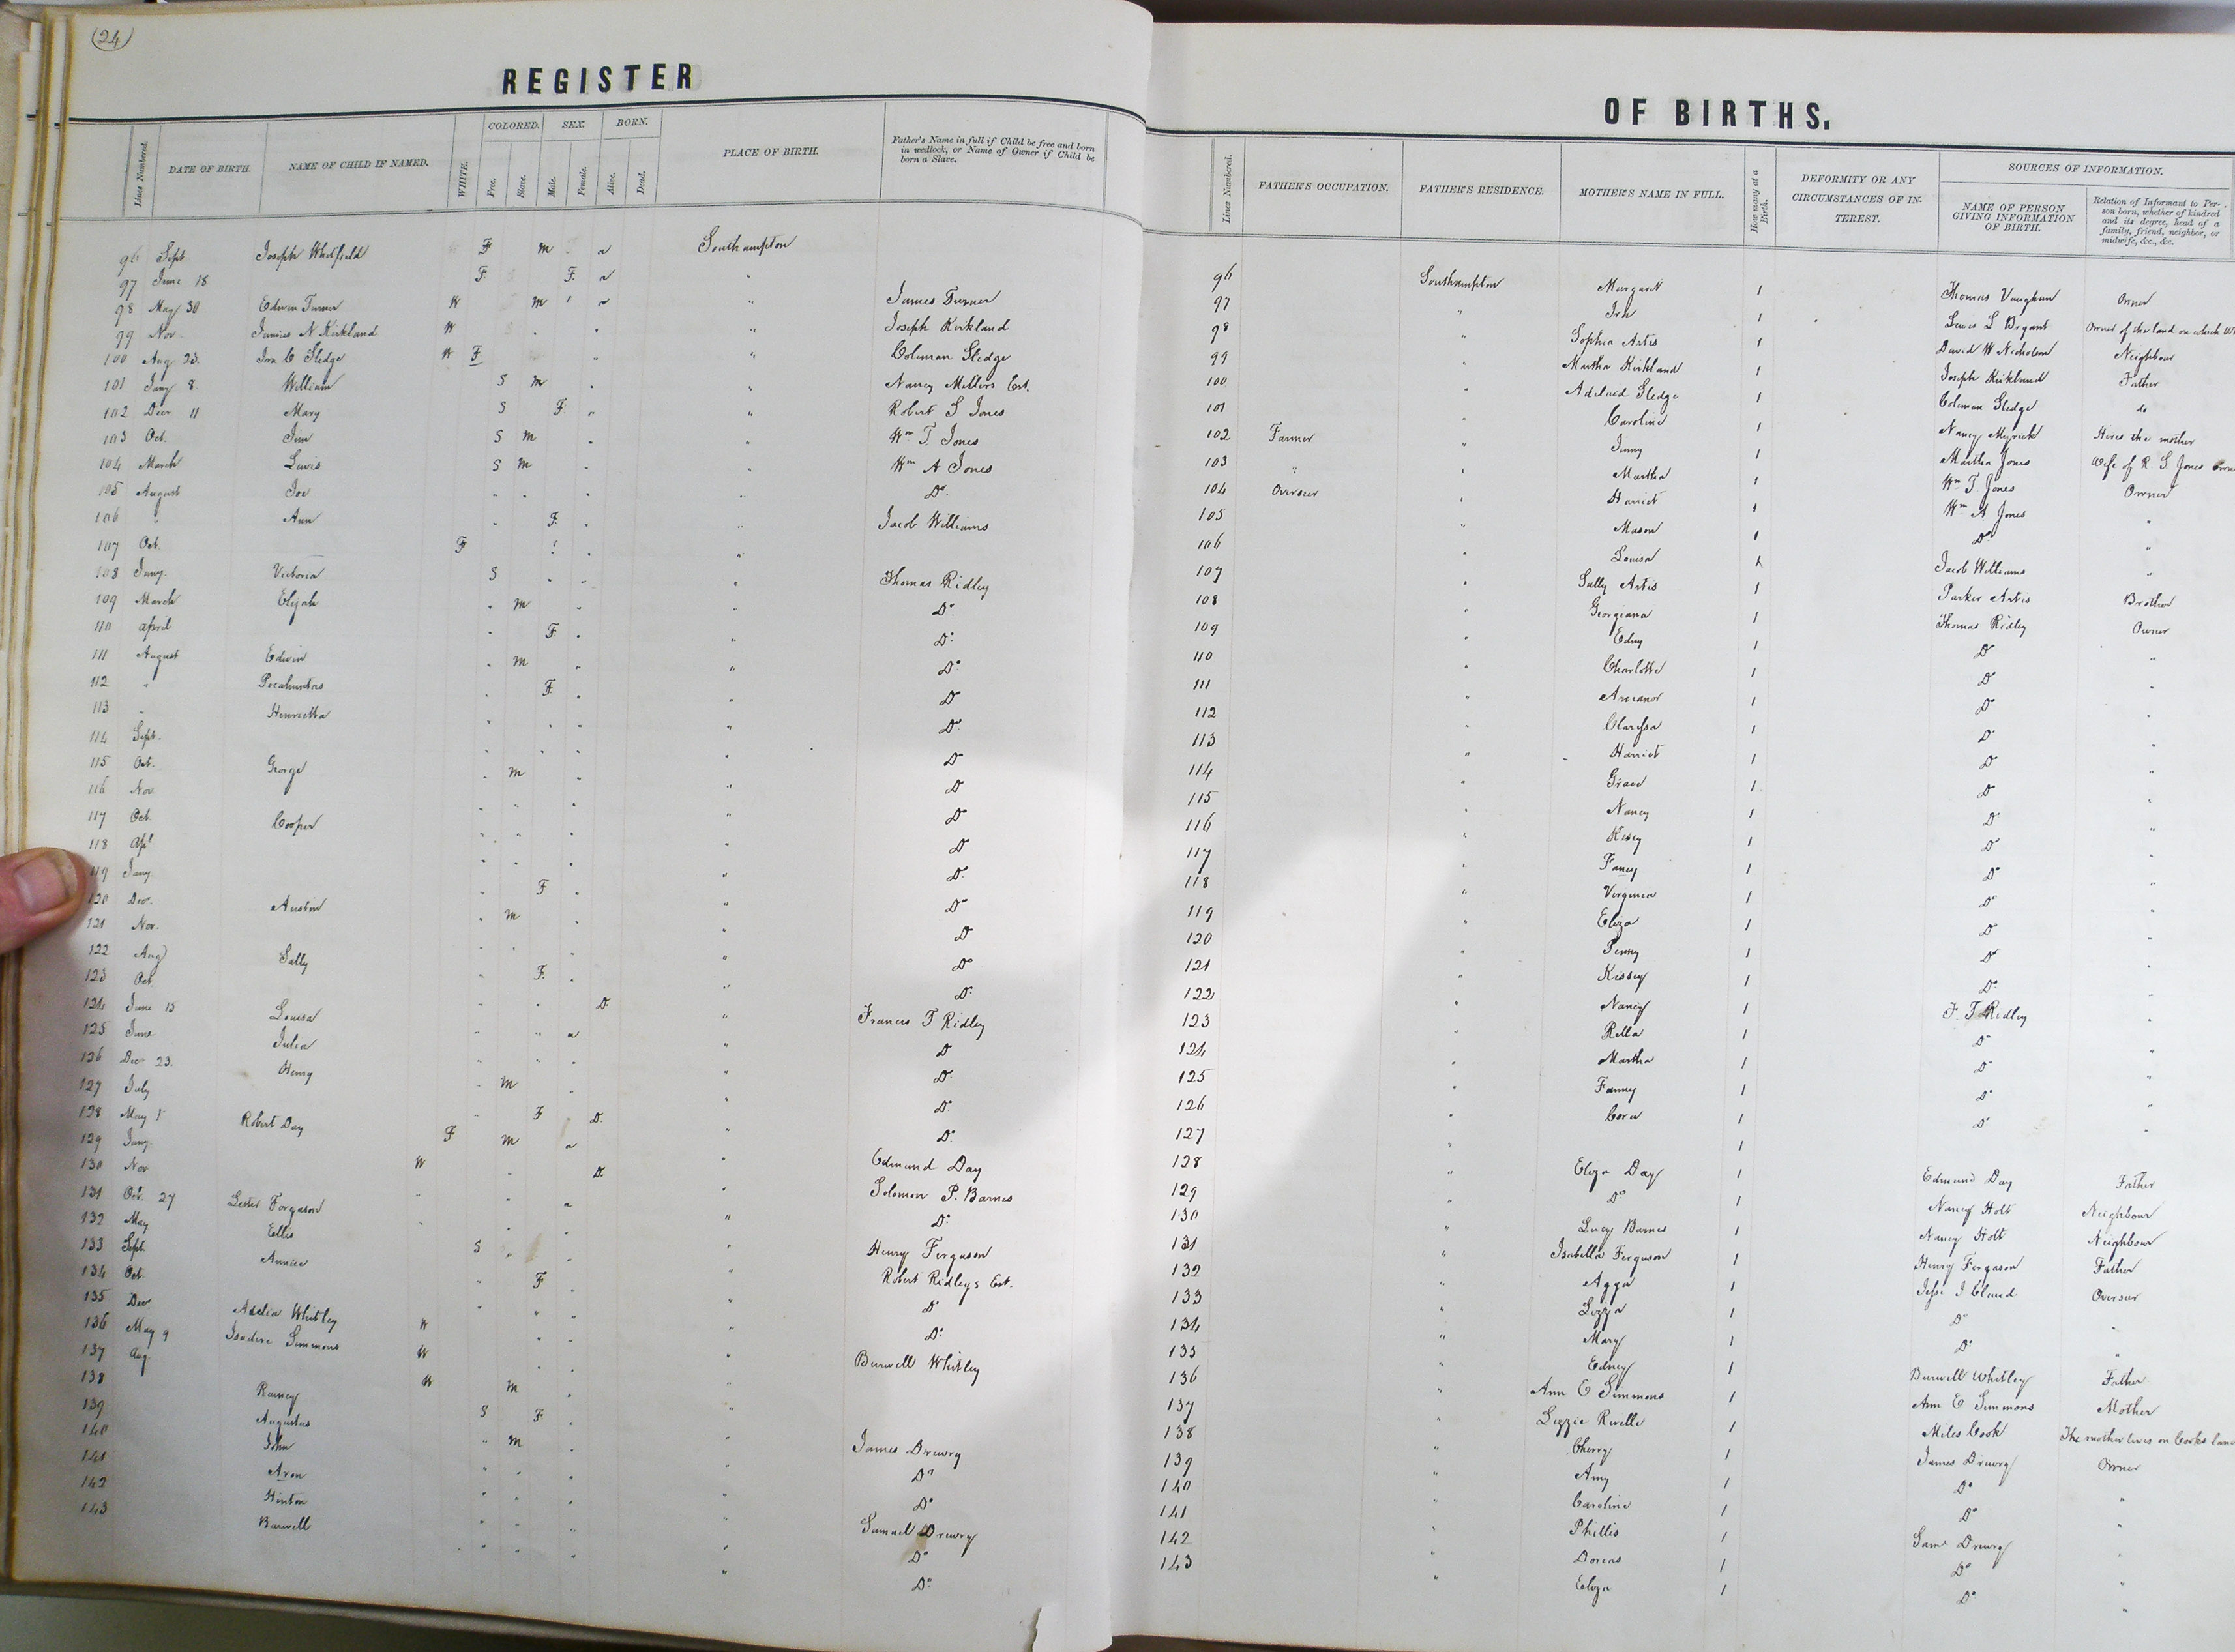 24
REGISTER
Lines Numbered. DATE OF BIRTH. NAME OF CHILD IF NAMED. WHITE. COLORED. Free. Slave. SEX. Male. Female. BORN. Alive. Dead. PLACE OF BIRTH. Father's Name in full if Child be free and born in wedlock, or Name of Owner if Child be born a Slave.
96 Sept Joseph Whitfield F m a Southampton
97 June 18 F F a "
98 May 30 Edwin Turner W m a " James Turner
99 Nov. Junius N Kirkland W " " " Joseph Kirkland
100 Aug 23. Ira C Sledge W F " " Coleman Sledge
101 Jany 8. William S m " " Nancy Millers Est.
102 Decr 11 Mary S F " " Robert S Jones
103 Oct. Jim S m " " Wm T. Jones
104 March Lewis S m " " Wm A Jones
105 August Joe " " " " Do.
106 " Ann " F " " Jacob Williams
107 Oct. F " " "
108 Jany. Victoria S " " " Thomas Ridley
109 March Elijah " m " " Do
110 April " F " " Do
111 August Edwin " m " " Do
112 " Pocahuntas " F " " Do
113 " Henrietta " " " " Do
114 Sept. " " " " Do
115 Oct. George " m " " Do
116 Nov " " " " Do
117 Oct. Cooper " " " " Do
118 Apl " " " " Do
119 Jany. " F " " Do
120 Dec. Austin " m " " Do
121 Nov. " " " " Do
122 Aug Sally " F " " Do
123 Oct. " " D. " Francis T Ridley
124 June 15 Louisa " " a " Do
125 June Julia " " " " Do
126 Decr 23. Henry " m " " Do
127 July " F D. " Do
128 May 1 Robert Day F m a " Edmund Day
129 Jany. W " D. " Solomon P. Barnes
130 Nov " " a " Do
131 Oct. 27 Lester Forgason " " " " Henry Ferguson
132 May Ellis S " " " Robert Ridleys Est.
133 Sept. Annice " F " " Do
134 Oct. " " " " Do
135 Decr Adelia Whitley W " " " Burwell Whitley
136 May 9 Isadore Simmons W " " "
137 Aug. W m " "
138 Raincy S F " " James Drewry
139 Augustus " m " " Do
140 John " " " " Do
141 Aron " " " " Samuel Drewry
142 Hinton " " " " Do
143 Burwell " " " " Do
OF BIRTHS.
Lines Numbered. FATHER'S OCCUPATION. FATHER'S RESIDENCE. MOTHER'S NAME IN FULL. How many at a Birth. DEFORMITY OR ANY CIRCUMSTANCES OF INTEREST. SOURCES OF INFORMATION. NAME OF PERSON GIVING INFORMATION OF BIRTH. Relation of Informant to Person born, whether of kindred and its degree, head of a family, friend, neighbor, or midwife, &c., &c.
96 Southampton Margaret 1 Thomas Vaughan Owner
97 " 1 Lewis L Bryant Owner of the land on which
98 " Sophia Artis 1 David W Nicholson Neighbour
99 " Martha Kirkland 1 Joseph Kirkland Father
100 " Adelaid Sledge 1 Coleman Sledge do
101 " Caroline 1 Nancy Myrick Hires the mother
102 Farmer " Jinny 1 Martha Jones Wife of R. S. Jones
103 " " Martha 1 Wm T Jones Owner
104 Overseer " Harriet 1 Wm A Jones "
105 " Mason 1 Do "
106 " Louisa 1 Jacob Williams "
107 " Sally Artis 1 Parker Artis Brother
108 " Georgiana 1 Thomas Ridley Owner
109 " Edny 1 Do "
110 " Charlotte 1 Do "
111 " Armanor 1 Do "
112 " Clarissa 1 Do "
113 " Harriet 1 Do "
114 " Grace 1 Do "
115 " Nancy 1 Do "
116 " Kisey 1 Do "
117 " Fancy 1 Do "
118 " Virginia 1 Do "
119 " Eliza 1 Do "
120 " Penny 1 Do "
121 " Kissey 1 Do "
122 " Nancy 1 F. T Ridley "
123 " Rella 1 Do "
124 " Martha 1 Do "
125 " Fanny 1 Do "
126 " Cora 1 Do "
127 " 1
128 " Eliza Day 1 Edmund Day Father
129 " Do 1 Nancy Holt Neighbour
130 " Lucy Barnes 1 Nancy Holt Neighbour
131 " Isabella Ferguson 1 Henry Fergason Father
132 " Agga 1 Jesse J Claud Overseer
133 " Lizza 1 Do "
134 " Mary 1 Do "
135 " Edney 1 Burwell Whitley Father
136 " Ann E Simmons 1 Ann E Simmons Mother
137 " Lizzie Rivelle 1 Miles Cook The mother lives on Cooks land
138 " Cherry 1 James Drewry Owner
139 " Amy 1 Do "
140 " Caroline 1 Do "
141 " Phillis 1 Saml Drewry "
142 " Dorcas 1 Do "
143 " Eliza 1 Do "